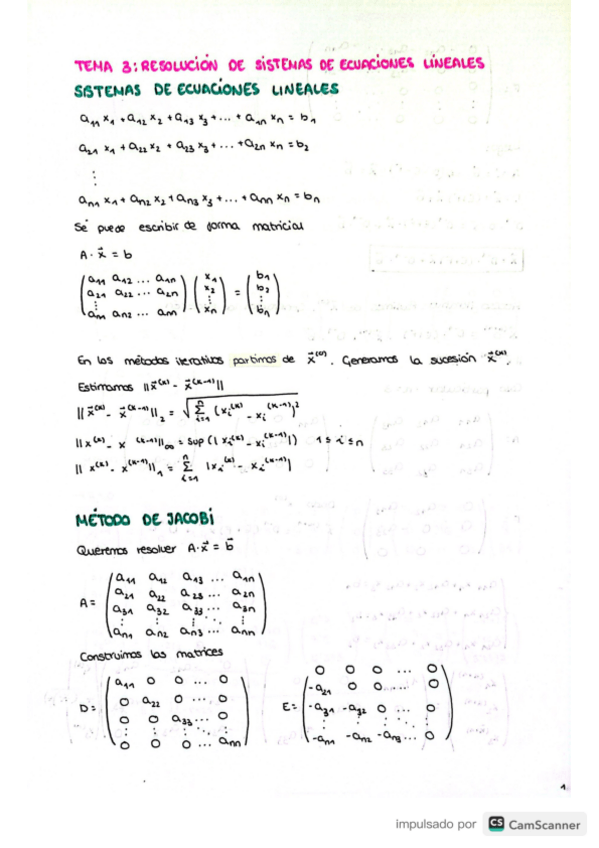 TEMA 3: RESOLUCIÓN DE SISTEMAS DE ECUACIONES LINEALES
SISTEMAS DE ECUACIONES LINEALES
a₁₁ x₁ + a₁₂ x₂ + a₁₃ x₃ + ... + a₁ₙ xₙ = b₁
a₂₁ x₁ + a₂₂ x₂ + a₂₃ x₃ + ... + a₂ₙ xₙ = b₂
⋮
aₙ₁ x₁ + aₙ₂ x₂ + aₙ₃ x₃ + ... + aₙₙ xₙ = bₙ
Se puede escribir de forma matricial
A · x⃗ = b
( a₁₁ a₁₂ ... a₁ₙ ) ( x₁ ) = ( b₁ )
( a₂₁ a₂₂ ... a₂ₙ ) ( x₂ ) ( b₂ )
⋮ ⋮ ⋮
( aₙ₁ aₙ₂ ... aₙₙ ) ( xₙ ) ( bₙ )
En los métodos iterativos partimos de x⃗⁽⁰⁾. Generamos la sucesión x⃗⁽ᴷ⁾.
Estimamos ||x⃗⁽ᴷ⁾ - x⃗⁽ᴷ⁻¹⁾||
||x⃗⁽ᴷ⁾ - x⃗⁽ᴷ⁻¹⁾||₂ = √(Σᵢ₌₁ⁿ (xᵢ⁽ᴷ⁾ - xᵢ⁽ᴷ⁻¹⁾)²)
||x⁽ᴷ⁾ - x⁽ᴷ⁻¹⁾||∞ = sup (|xᵢ⁽ᴷ⁾ - xᵢ⁽ᴷ⁻¹⁾|) 1 ≤ i ≤ n
||x⁽ᴷ⁾ - x⁽ᴷ⁻¹⁾||₁ = Σᵢ₌₁ⁿ |xᵢ⁽ᴷ⁾ - xᵢ⁽ᴷ⁻¹⁾|
MÉTODO DE JACOBI
Queremos resolver A·x⃗ = b⃗
A = ( a₁₁ a₁₂ a₁₃ ... a₁ₙ )
( a₂₁ a₂₂ a₂₃ ... a₂ₙ )
( a₃₁ a₃₂ a₃₃ ... a₃ₙ )
⋮ ⋮ ⋮ ⋱ ⋮
( aₙ₁ aₙ₂ aₙ₃ ... aₙₙ )
Construimos las matrices
D = ( a₁₁ 0 0 ... 0 )
( 0 a₂₂ 0 ... 0 )
( 0 0 a₃₃ ... 0 )
⋮ ⋮ ⋮ ⋱ ⋮
( 0 0 0 ... aₙₙ )
E = ( 0 0 0 ... 0 )
( -a₂₁ 0 0 ... 0 )
( -a₃₁ -a₃₂ 0 ... 0 )
⋮ ⋮ ⋮ ⋱ ⋮
( -aₙ₁ -aₙ₂ -aₙ₃ ... 0 )
1
impulsado por CS CamScanner